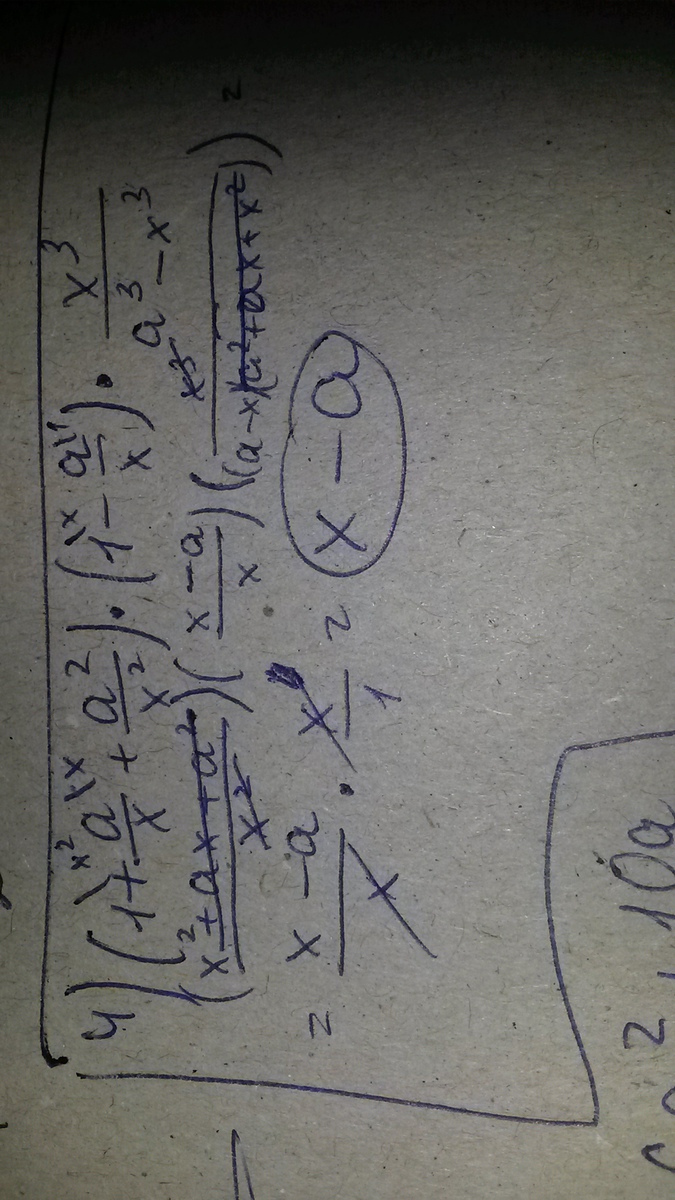 4) (1\x² + a/x\x + a²/x²) · (1\x − a/x\1) · x³/(a³ − x³)
((x² + ax + a²)/x²) ((x − a)/x) (x³/((a − x)(a² + ax + x²))) =
= (x − a)/x · x/1 = x − a
10a